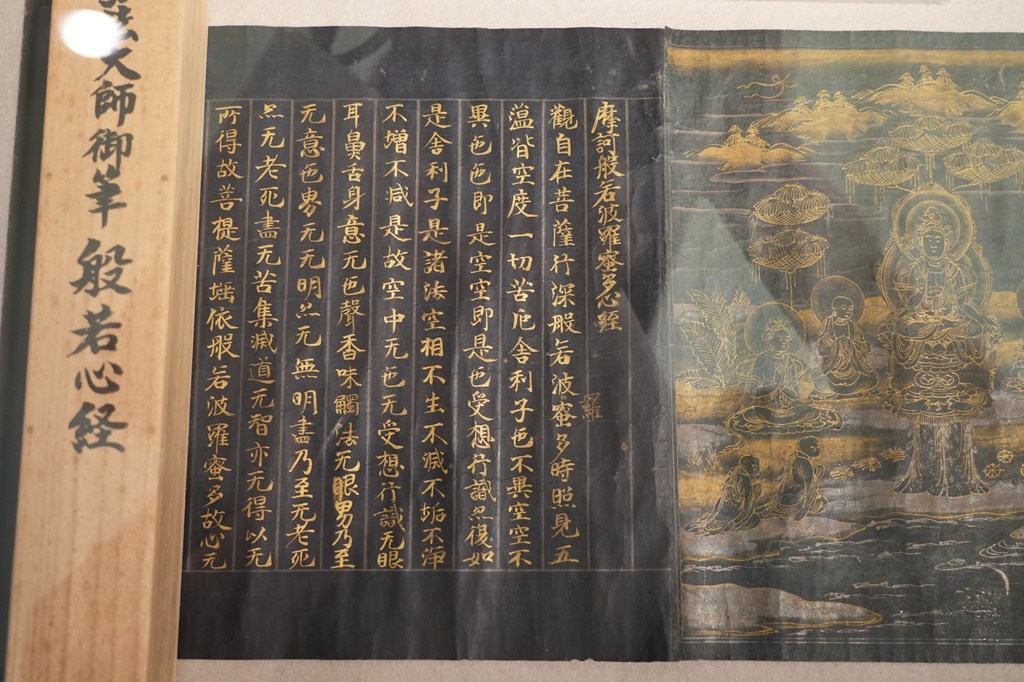 摩訶般若波羅蜜多心經
觀自在菩薩行深般若波蜜多時照見五
羅
薀皆空度一切苦厄舍利子色不異空空不
異色色即是空空即是色受想行識亦復如
是舍利子是諸法空相不生不滅不垢不淨
不增不減是故空中无色无受想行識无眼
耳鼻舌身意无色聲香味觸法无眼界乃至
无意色界无无明亦无無明盡乃至无老死
亦无老死盡无苦集滅道无智亦无得以无
所得故菩提薩埵依般若波羅蜜多故心无
法大師御筆 般若心経